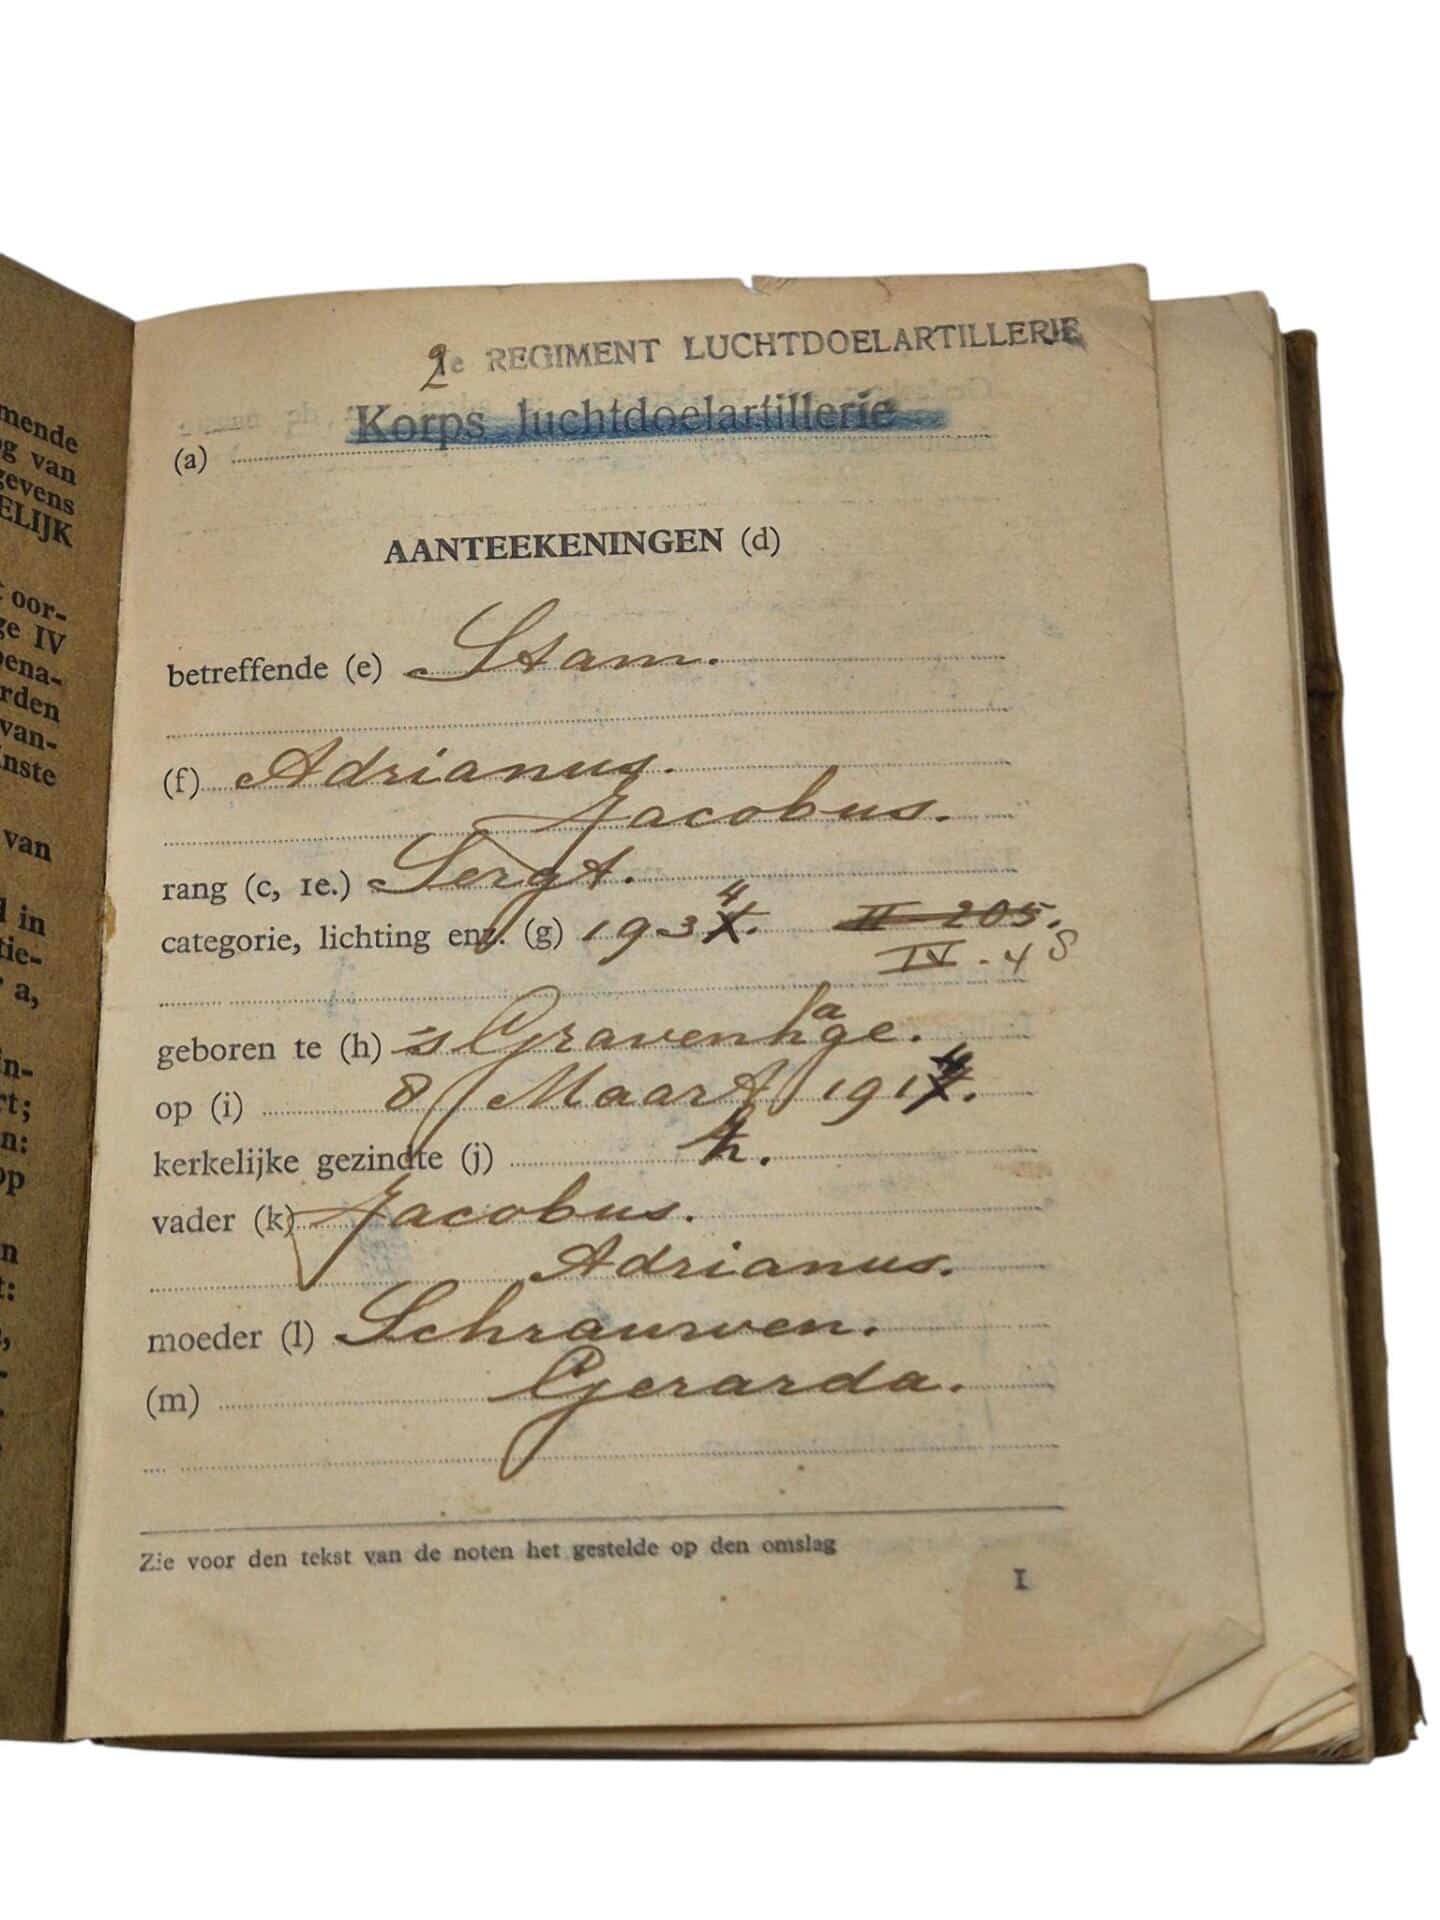 mende
og van
gevens
ELIJK
oor-
ge IV
bena-
rden
van-
inste
van
d in
tie-
r a,
in-
rt;
en:
op
n
t:
2e REGIMENT LUCHTDOELARTILLERIE
Korps luchtdoelartillerie
(a)
AANTEEKENINGEN (d)
betreffende (e) Stam.
(f) Adrianus.
Jacobus.
rang (c, 1e.) Sergt.
categorie, lichting enz. (g) 1934. II 205.
IV - 48
geboren te (h) 's Gravenhage.
op (i) 8 Maart 1914.
kerkelijke gezindte (j)
vader (k) Jacobus.
Adrianus.
moeder (l) Schrauwen.
(m) Gerarda.
Zie voor den tekst van de noten het gestelde op den omslag
1